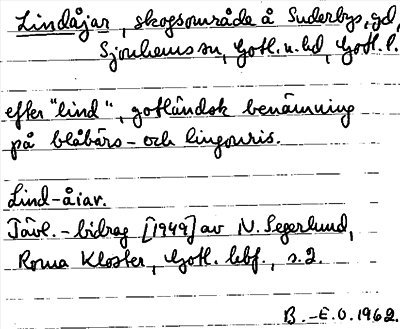 Lindåjar, skogsområde å Suderbys, gd,
Sjonhems sn, Gotl. n. hd, Gotl. l.
efter "lind", gotländsk benämning
på blåbärs- och lingonris.
Lind-åiar.
Tävl.-bidrag [1949] av N. Segerlund,
Roma Kloster, Gotl. lbf., s. 2.
B.-E.O. 1962.